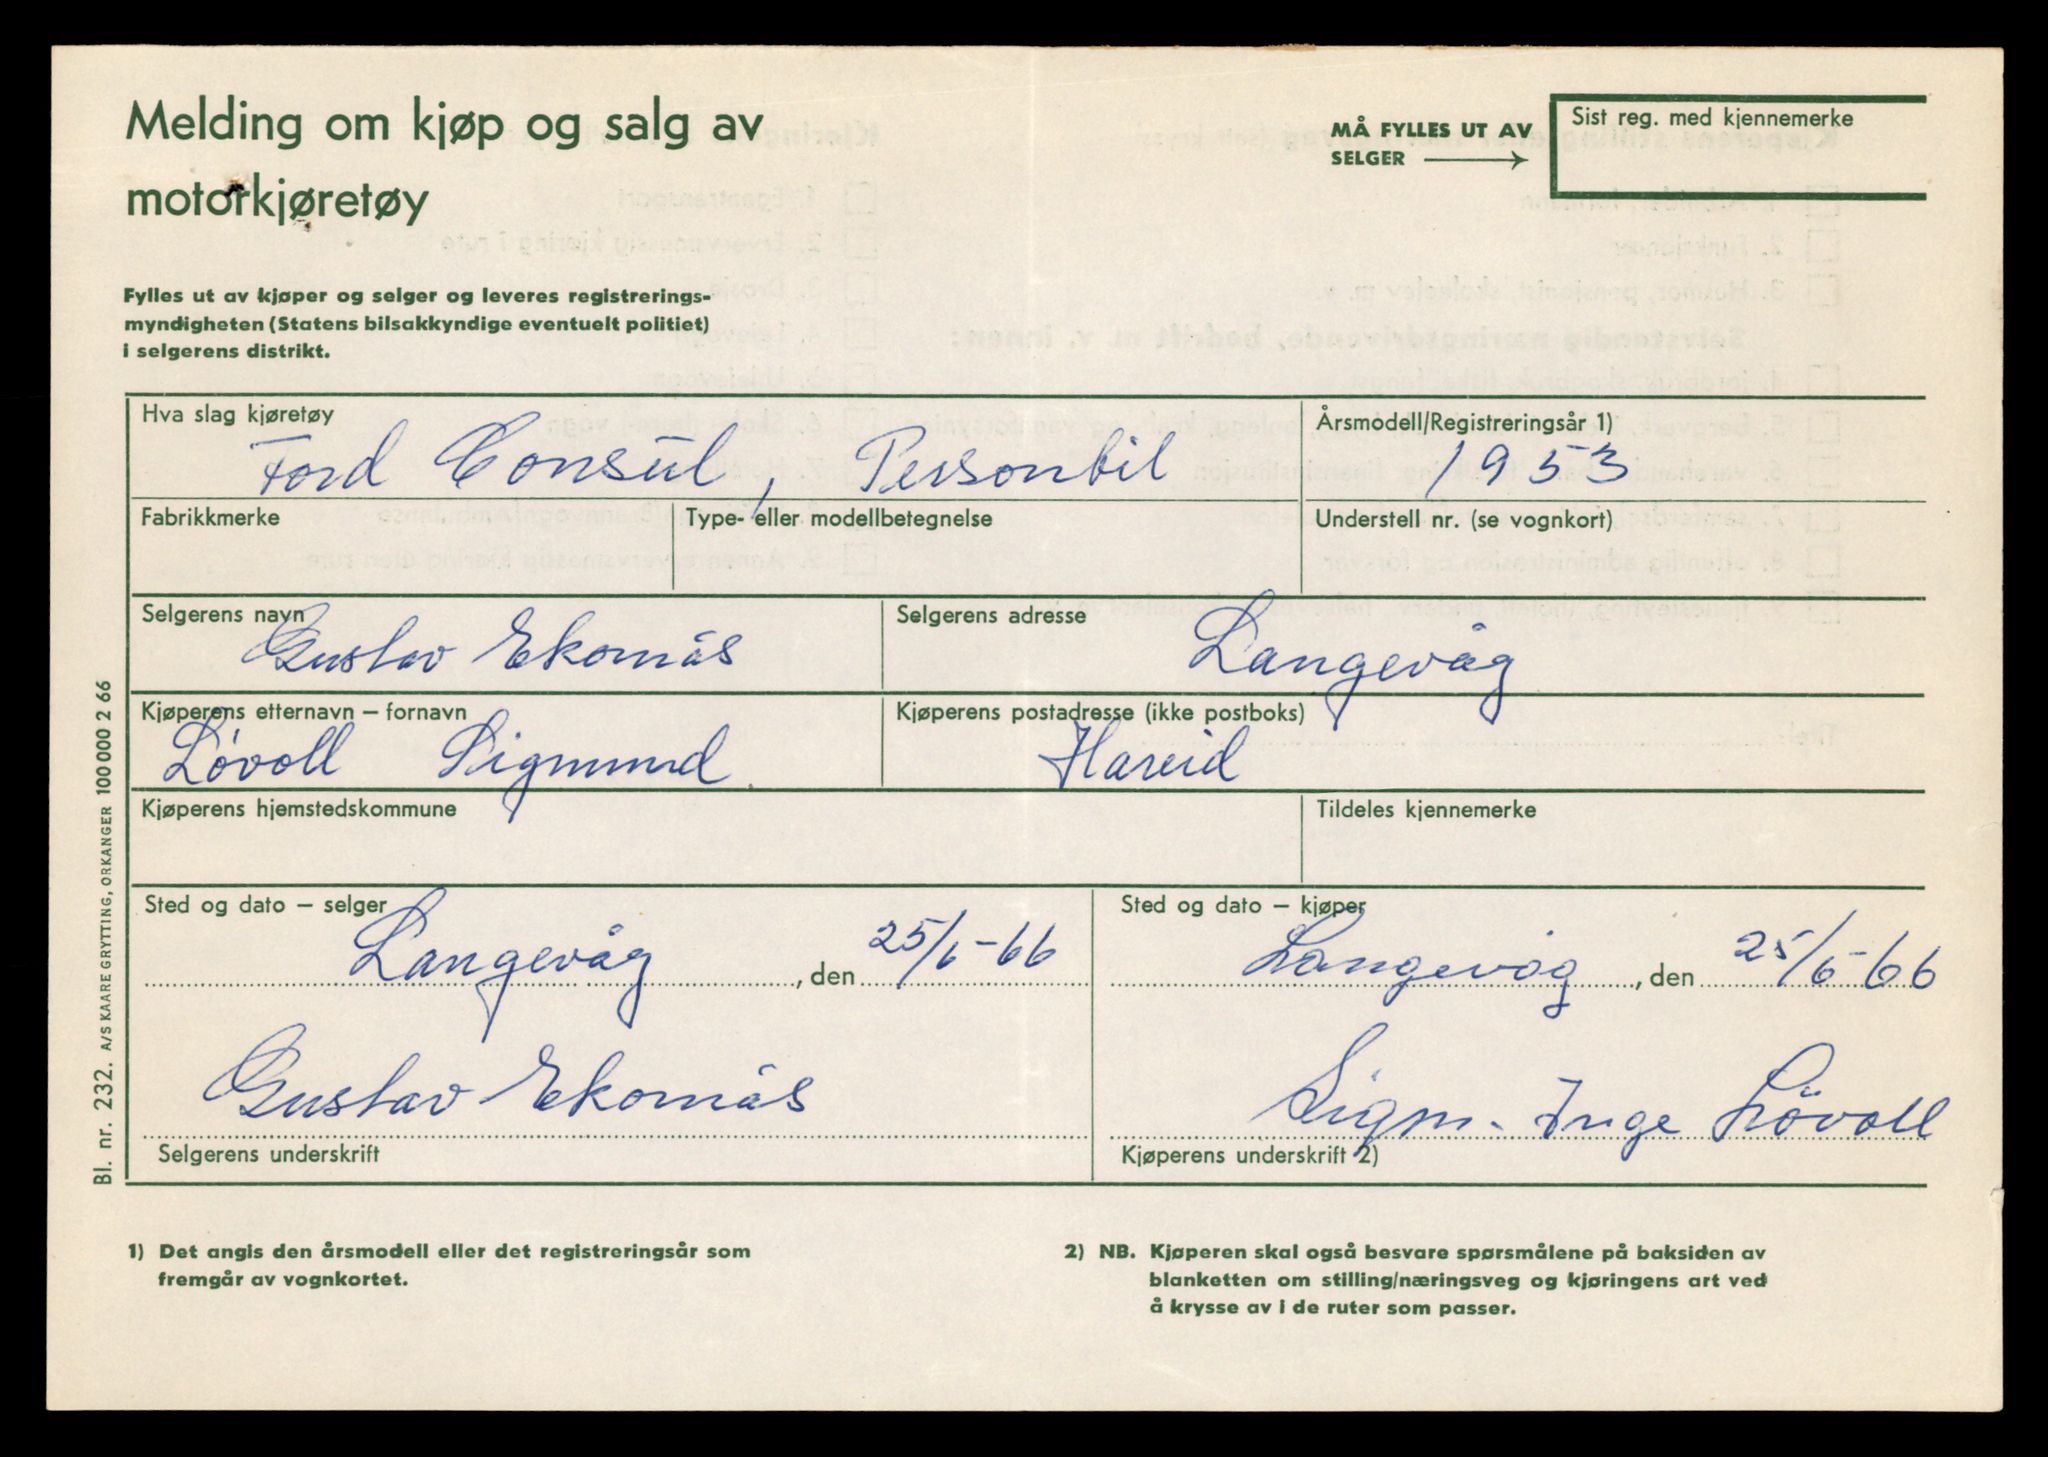 Melding om kjøp og salg av
motorkjøretøy
MÅ FYLLES UT AV
SELGER
Sist reg. med kjennemerke
Fylles ut av kjøper og selger og leveres registrerings-
myndigheten (Statens bilsakkyndige eventuelt politiet)
i selgerens distrikt.
Hva slag kjøretøy
Ford Consul, Personbil
Årsmodell/Registreringsår 1)
1953
Fabrikkmerke
Type- eller modellbetegnelse
Understell nr. (se vognkort)
Selgerens navn
Gustav Ekornås
Selgerens adresse
Langevåg
Kjøperens etternavn – fornavn
Lövoll Sigmund
Kjøperens postadresse (ikke postboks)
Hareid
Kjøperens hjemstedskommune
Tildeles kjennemerke
Sted og dato – selger
Langevåg, den 25/6-66
Sted og dato – kjøper
Langevåg, den 25/6-66
Gustav Ekornås
Selgerens underskrift
Sigm. Inge Lövoll
Kjøperens underskrift 2)
Bl. nr. 232. A/S KAARE GRYTTING, ORKANGER 100 000 2 66
1) Det angis den årsmodell eller det registreringsår som
fremgår av vognkortet.
2) NB. Kjøperen skal også besvare spørsmålene på baksiden av
blanketten om stilling/næringsveg og kjøringens art ved
å krysse av i de ruter som passer.